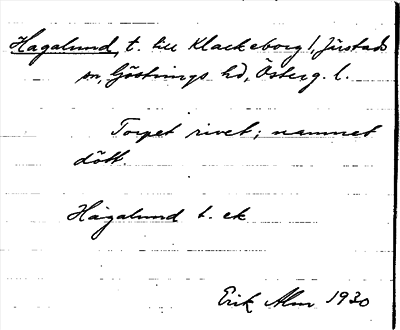 Hagalund, t. till Klackeborg 1, Justads
sn, Göstrings hd, Österg. l.
Torpet rivet; namnet
dött.
Hagalund t. ek
Erik Alm 1930